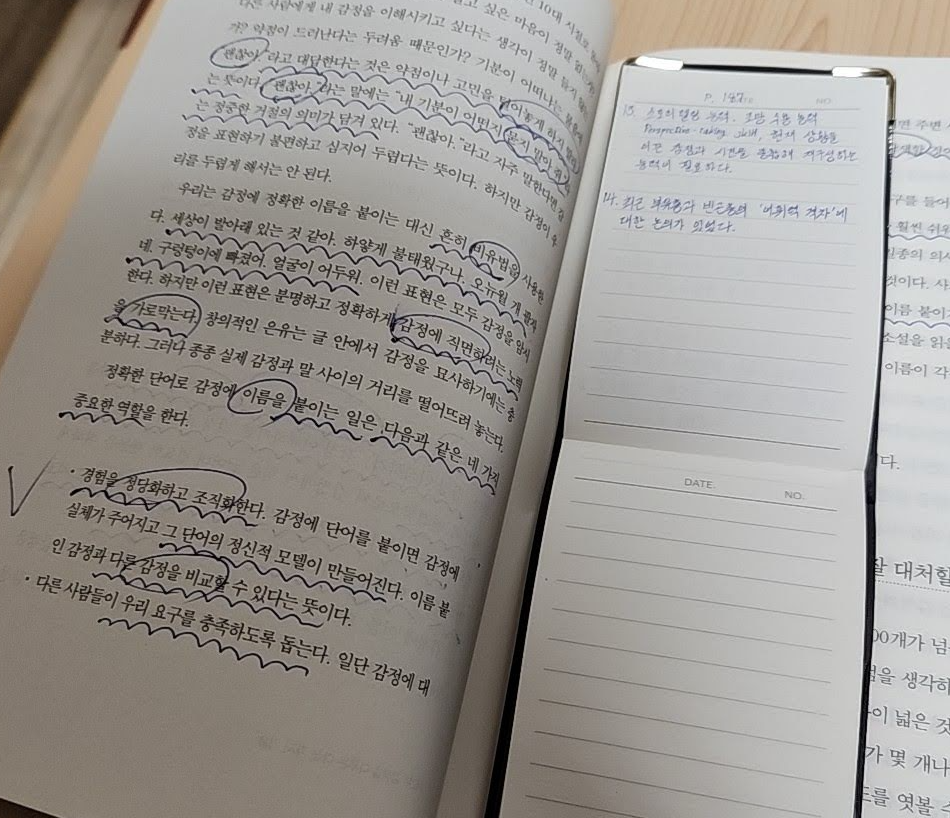 10대 시절로
다른 사람에게 내 감정을 이해시키고 싶다는 생각이 정말
가? 약점이 드러난다는 두려움 때문인가? 기분이 어떠냐는
괜찮아."라고 대답한다는 것은 약점이나 고민을 털어놓게 하지 말라
는 뜻이다. "괜찮아."라는 말에는 "내 기분이 어떤지 묻지 말아 줘."라
는 정중한 거절의 의미가 담겨 있다. "괜찮아."라고 자주 말한다면 감
정을 표현하기 불편하고 심지어 두렵다는 뜻이다. 하지만 감정이 우
리를 두렵게 해서는 안 된다.
우리는 감정에 정확한 이름을 붙이는 대신 흔히 비유법을 사용한
다. 세상이 발아래 있는 것 같아. 하얗게 불태웠구나. 오뉴월 개 팔자
네. 구렁텅이에 빠졌어. 얼굴이 어두워. 이런 표현은 모두 감정을 암시
한다. 하지만 이런 표현은 분명하고 정확하게 감정에 직면하려는 노력
을 가로막는다. 창의적인 은유는 글 안에서 감정을 묘사하기에는 충
분하다. 그러나 종종 실제 감정과 말 사이의 거리를 떨어뜨려 놓는다.
정확한 단어로 감정에 이름을 붙이는 일은 다음과 같은 네 가지
중요한 역할을 한다.
· 경험을 정당화하고 조직화한다. 감정에 단어를 붙이면 감정에
실체가 주어지고 그 단어의 정신적 모델이 만들어진다. 이름 붙
인 감정과 다른 감정을 비교할 수 있다는 뜻이다.
· 다른 사람들이 우리 요구를 충족하도록 돕는다. 일단 감정에 대
P. 187
NO.
13. 스토리텔링 능력. 조망 수용 능력
Perspective-taking skill. 현재 상황을
시간을 재구성하는
능력이 필요하다.
14. 최근 부유층과 빈곤층의 '어휘력 격차'에
대한 논의가 있었다.
DATE.
NO.
면 주변
구를 들어
훨씬 쉬워
일종의 의사
것이다. 사
이름 붙이
소설을 읽을
이름이 각
다.
잘 대처할
00개가 넘
을 생각하
이 넓은 것
가 몇 개나
도를 엿볼 수